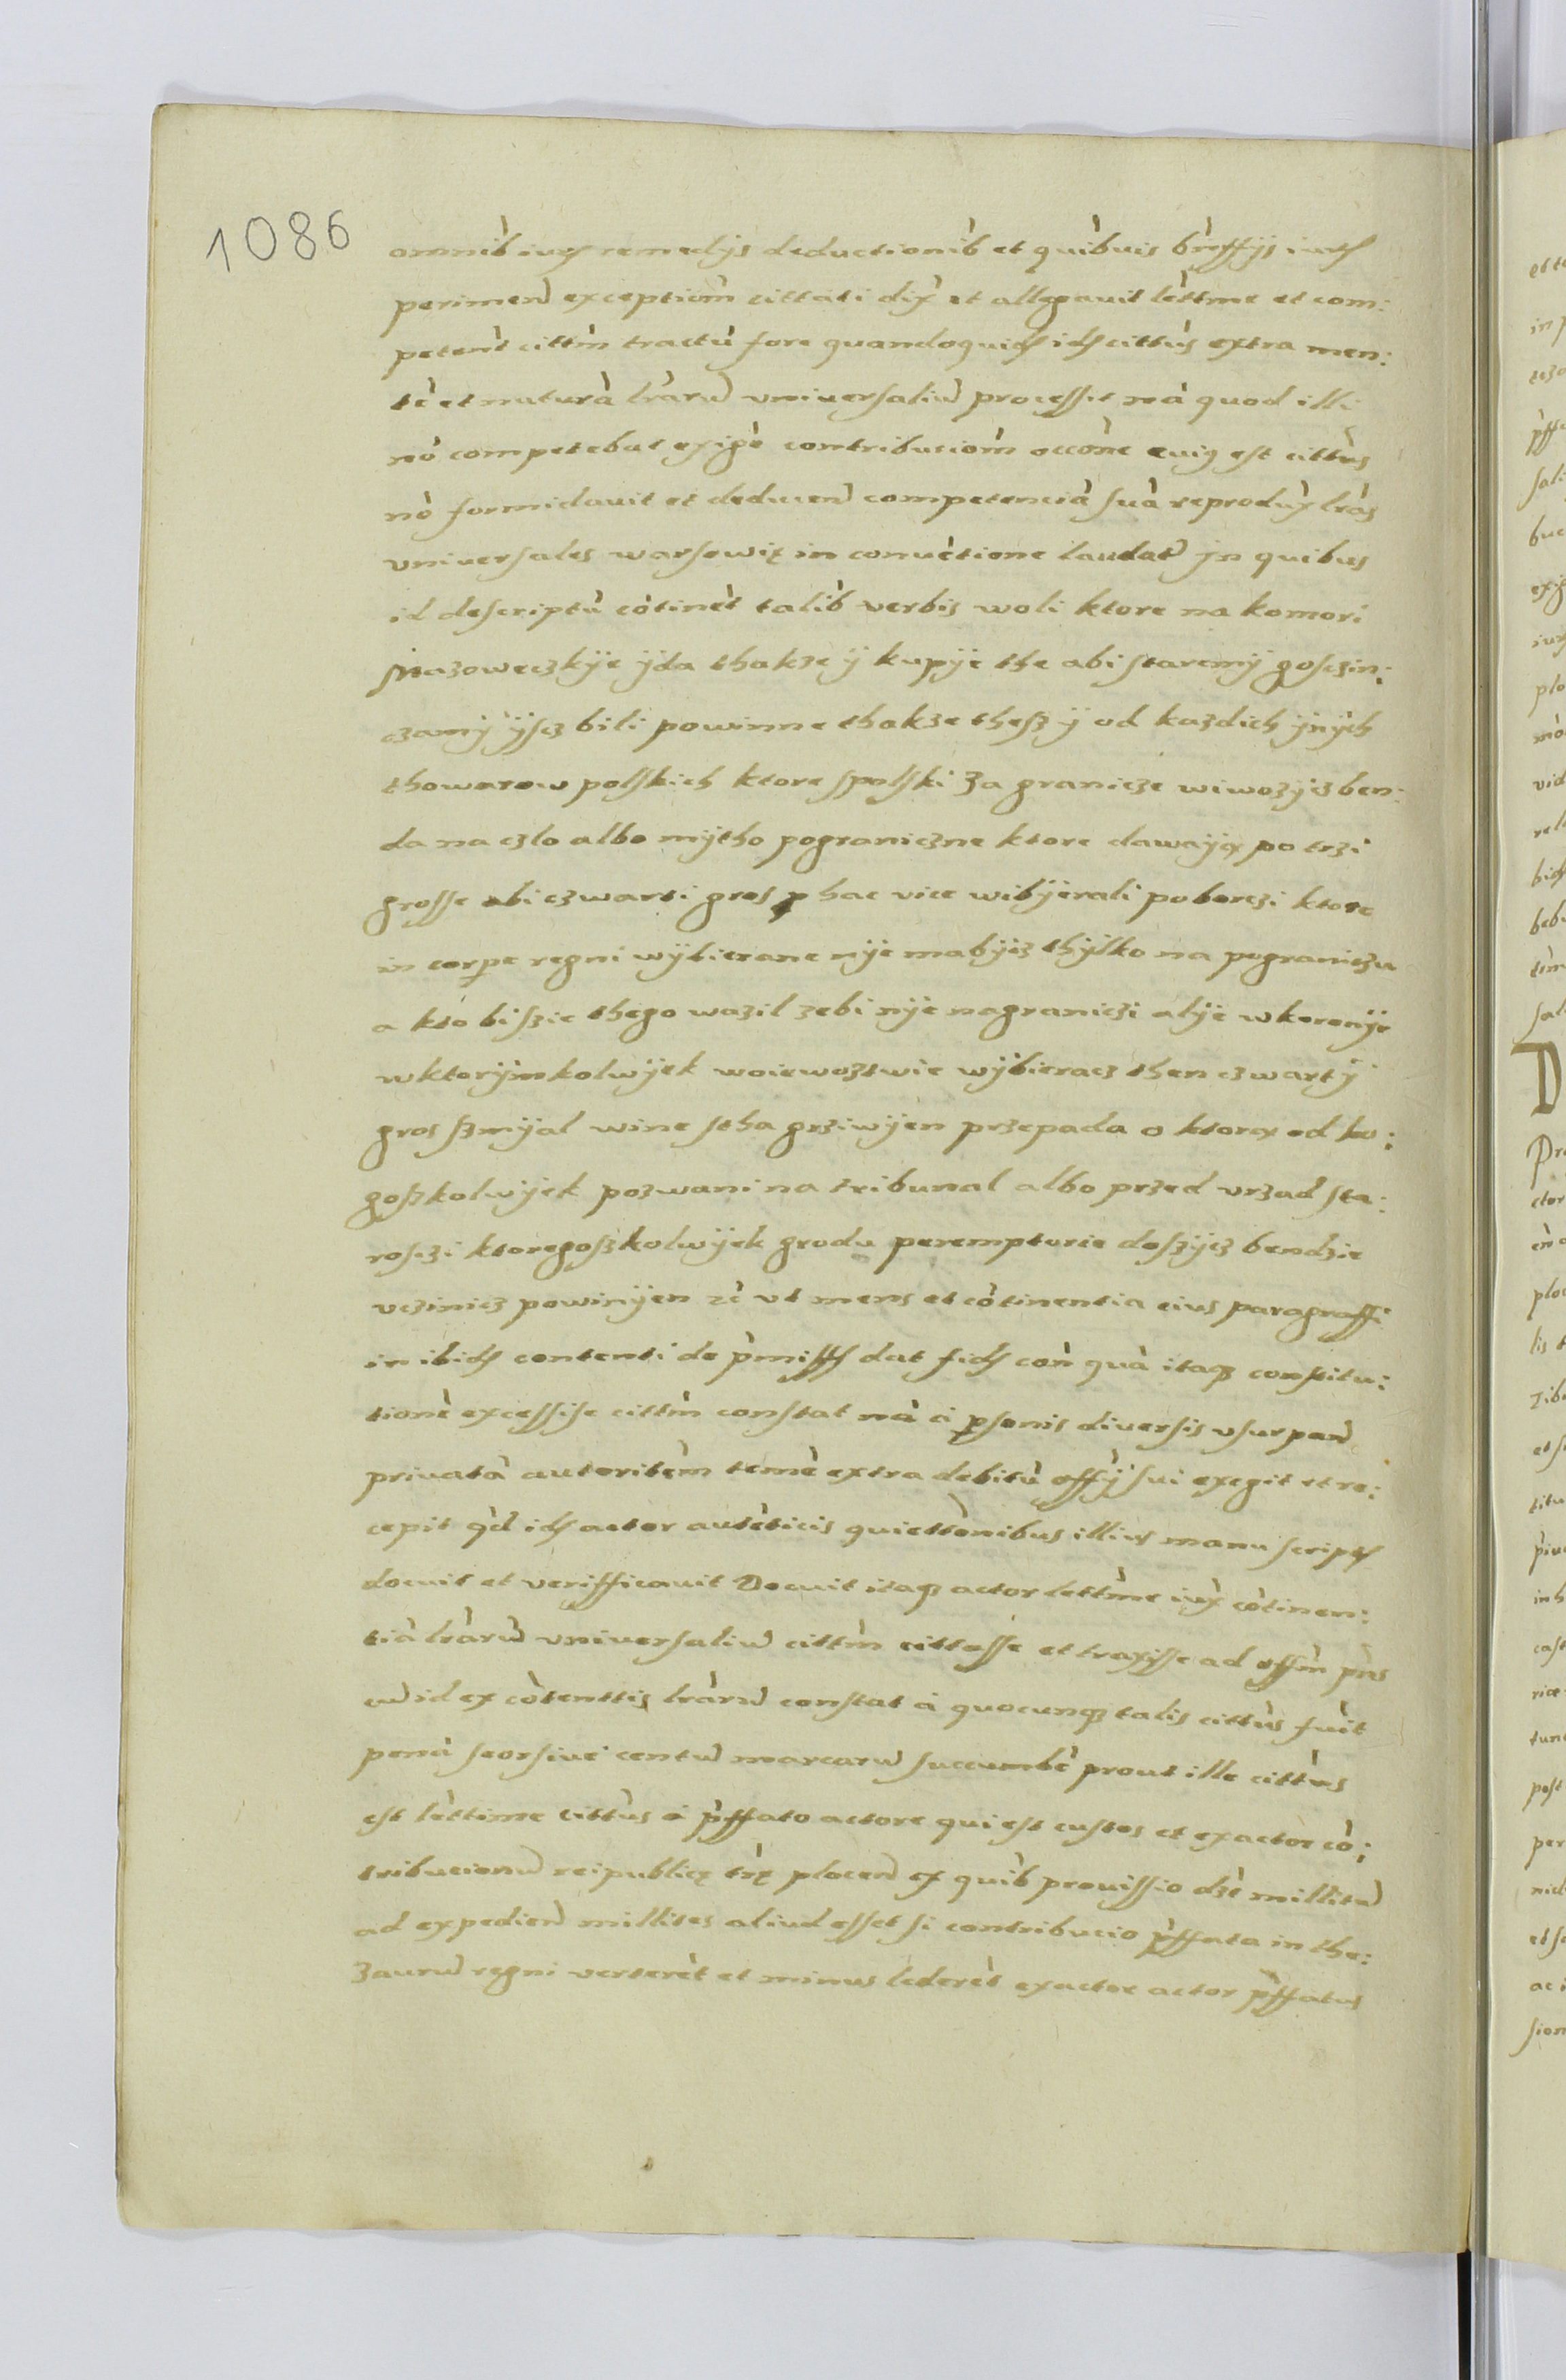 1086
omnib iurs remedys deductionib et quibuis breffys iurs
perimen exceptiom cittati dix et allegauit lettme et com:
petent cittm tractu fore quandoquid ids cittus extra men:
te et natura lraru vniuersaliu processit na quod illi
no competebat exige contributiom occone cuius est cittus
no formidauit et deducen competencia sua reprodux lras
vniuersales warsowię in conuetione laudat jn quibus
id descriptu cotinet talib verbis woli ktore na komori
Mazoweczkÿe ÿda thakze ÿ kupÿe the abi staremÿ gosczin:
czamÿ ÿscz bili powinne thakze thesz ÿ od kazdich ÿnÿch
thowarow polskich ktore spolski za granicze wiwozÿcz ben:
da na czlo albo mÿtho pograniczne ktore dawayą po trzi
grosse abi czwarti gros p hac vice wibÿerali poborczi ktore
in corpe regni wÿbierane nÿe mabÿcz thÿlko na pograniczu
a kto bi szie thego wazil zebi nÿe nagraniczi alÿe wkoronÿe
wktorÿmkolwÿek woiewoztwie wÿbieracz then czwartÿ
gros szmÿal wine stha grziwÿen przepada o ktorą od ko:
goszkolwÿek pozwani na tribunal albo przed vrzad sta:
rosczi ktoregoszkolwÿek grodu peremptorie doszÿcz bendzie
vczinicz powinÿen etc vt mens et cotinentia eius paragraffi
in ibids contenti de pmisss dat fids con qua itaq constitu:
tione excessise cittm constat na a psonis diuersis vsurpan
priuata autoritem teme extra debitu offÿ sui exegit et re:
cepit qd ids actor auteticis quiettonibus illius manu scripts
docuit et verifficauit Docuit itaq actor lettme iux cotinen:
tia lraru vniuersaliu cittm cittasse et traxisse ad offm pns
cu id ex cotenttis lraru constat a quocunq talis cittus fuit
pena seorsiue centu marcaru succumbe prout ille cittus
est lettime cittus a pffato actore qui est custos et exactor co:
tribucionu reipublicę trę plocen ex quib prouissio dze millitu
ad expedien millites aliud esset si contribucio pffata in the:
zauru regni verteret et minus lederet exactor actor pffatus